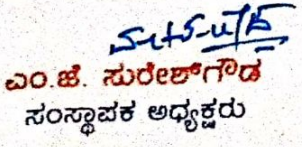 ಎಂ.ಜೆ. ಸುರೇಶ್‌ಗೌಡ
ಸಂಸ್ಥಾಪಕ ಅಧ್ಯಕ್ಷರು